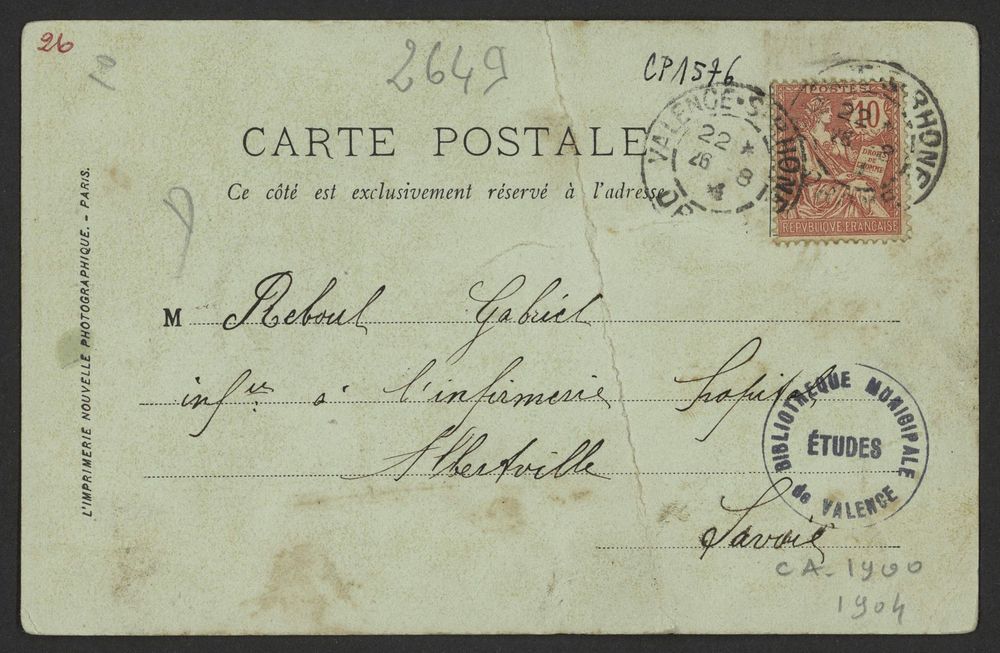 26
10
2649
CP1576
CARTE POSTALE
Ce côté est exclusivement réservé à l'adresse
VALENCE-S-RHONE
22 *
26 8
POSTES
10
DROITS DE L'HOMME
REPVBLIQVE FRANÇAISE
RHONE
22
L'IMPRIMERIE NOUVELLE PHOTOGRAPHIQUE. - PARIS.
M Reboul Gabriel
inf.er à l'infirmerie hopital
Albertville
Savoie
BIBLIOTHEQUE MUNICIPALE
ÉTUDES
de VALENCE
CA-1900
1904